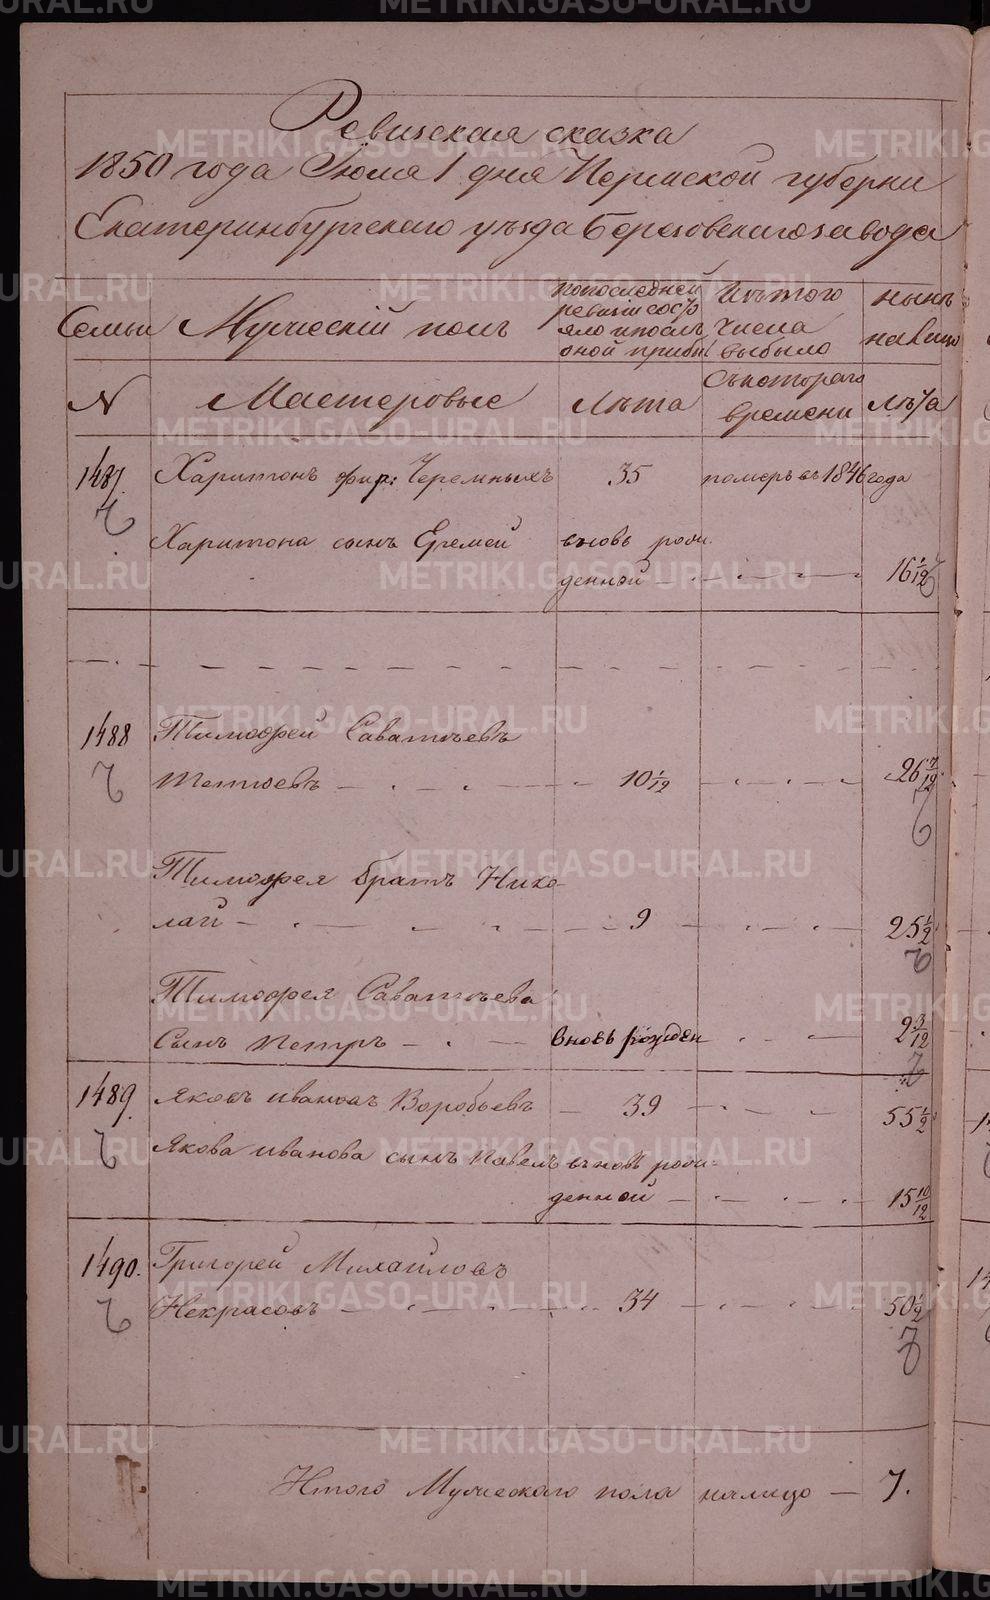 Ревизская сказка
1850 года Июля 1 дня Пермской губерни
Екатеринбургскаго уъзда Березовскаго завода
Семьи Мужескій полъ
по последней ревизіи состояло и после оной прибы
Изъ того числа выбыло
нынъ на лицо
N Мастеровые Лъта
Съ котораго времени
лъта
1487. Харитонъ фир: Черемныхъ 35 померъ въ 1846 года
Харитона сынъ Еремей вновь рож
денный 16 1/12
1488 Тимофей Саватъевъ
10 1/12 26 7/12
Тимофея братъ Нико
лай 9 25 1/2
Тимофея Саватъева
Сынъ Петръ вновь рожден 2 3/12
1489. Яковъ ивановъ Воробьевъ 39 55 1/2
Якова иванова сынъ Павелъ вновь рож
денной 15 10/12
1490. Григорей Михайловъ
Некрасовъ 34 50 1/2
Итого Мужескаго пола налицо — 7.
METRIKI.GASO-URAL.RU